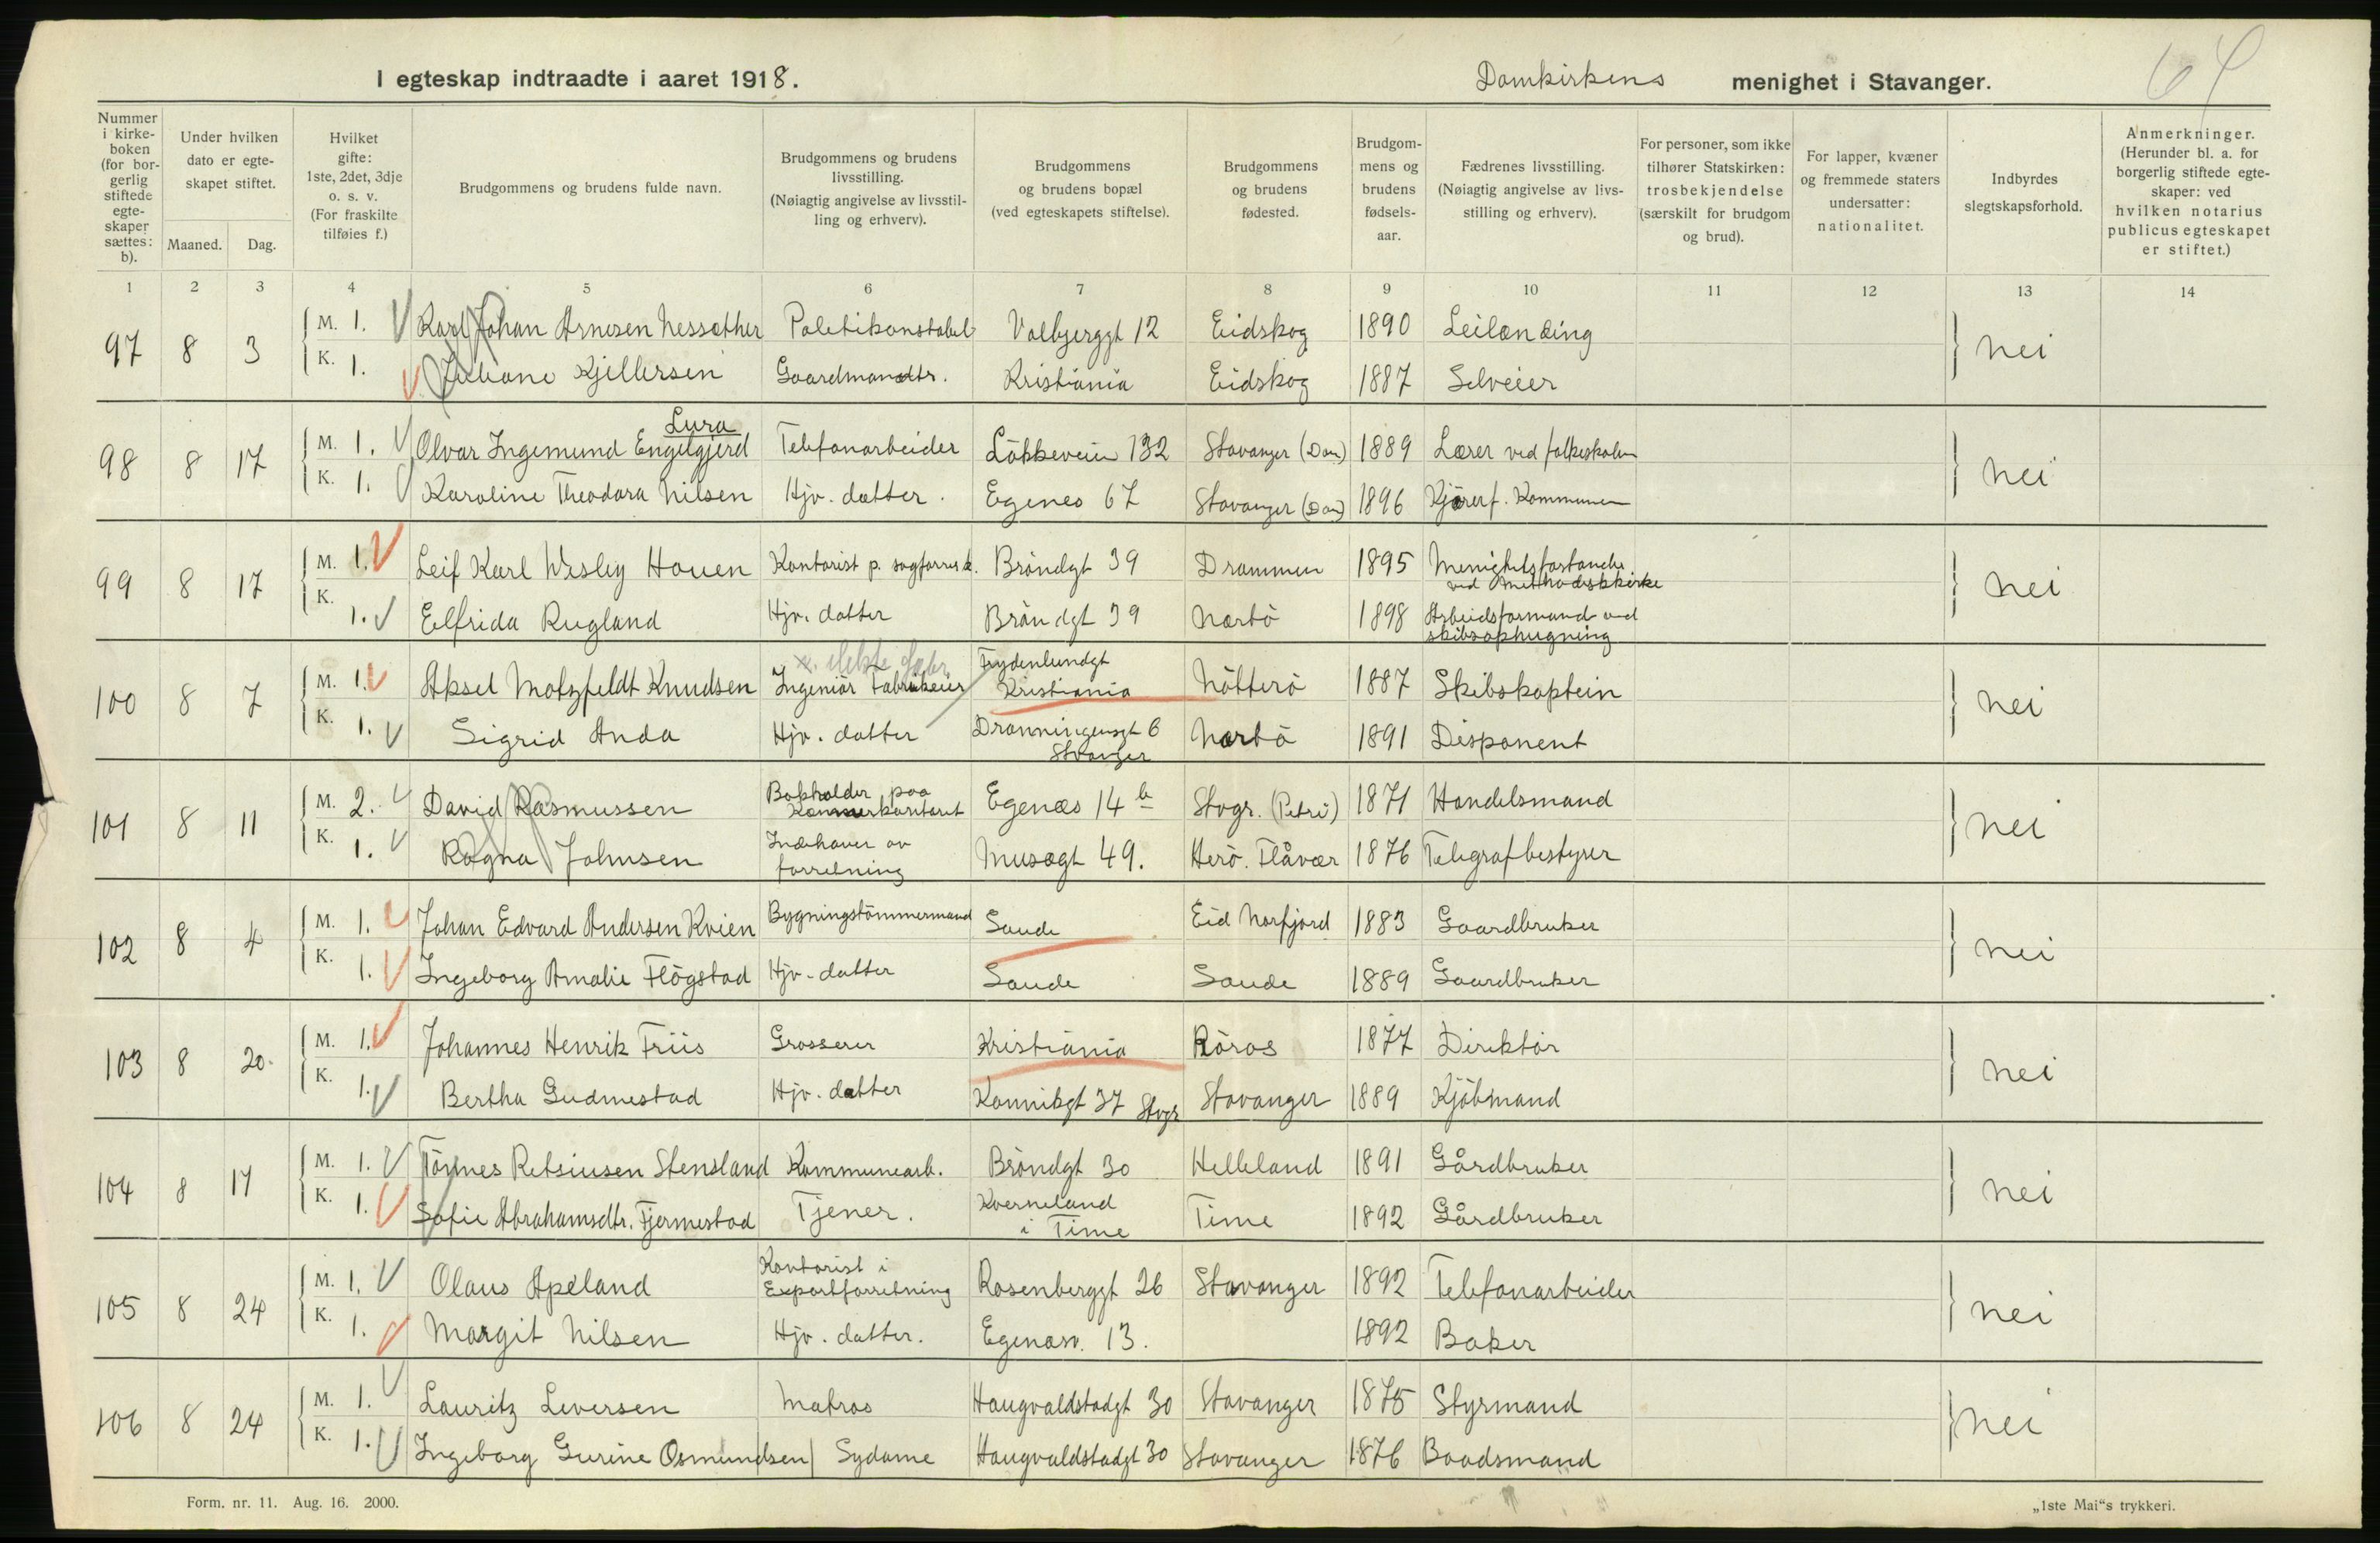 64
I egteskap indtraadte i aaret 1918. Domkirkens menighet i Stavanger.
Nummer i kirke-boken (for bor-gerlig stiftede egte-skaper sættes: b).
Under hvilken dato er egte-skapet stiftet.
Maaned. Dag.
Hvilket gifte: 1ste, 2det, 3dje o. s. v. (For fraskilte tilføies f.)
Brudgommens og brudens fulde navn.
Brudgommens og brudens livsstilling. (Nøiagtig angivelse av livsstil-ling og erhverv).
Brudgommens og brudens bopæl (ved egteskapets stiftelse).
Brudgommens og brudens fødested.
Brudgom-mens og brudens fødsels-aar.
Fædrenes livsstilling. (Nøiagtig angivelse av livs-stilling og erhverv).
For personer, som ikke tilhører Statskirken: trosbekjendelse (særskilt for brudgom og brud).
For lapper, kvæner og fremmede staters undersatter: nationalitet.
Indbyrdes slegtskapsforhold.
Anmerkninger. (Herunder bl. a. for borgerlig stiftede egte-skaper: ved hvilken notarius publicus egteskapet er stiftet.)
1 2 3 4 5 6 7 8 9 10 11 12 13 14
97 8 3 M. 1. Karl Johan Arnesen Nessæther Politikonstabel Valbjerggt 12 Eidskog 1890 Leilænding nei
K. 1. Juliane Kjellersen Gaardmandtr. Kristiania Eidskog 1887 Selveier
Lura
98 8 17 M. 1. Olvar Ingemund Engelgjerd Telefonarbeider Lökkeveien 132 Stavanger (Dom) 1889 Lærer ved folkeskolen nei
K. 1. Karoline Theodora Nilsen Hjv. datter. Egenes 67 Stavanger (Dom) 1896 Kjörer f. Kommunen
99 8 17 M. 1. Leif Karl Wesley Houen Kontorist p. sagförerk. Bröndgt 39 Drammen 1895 Menighetsforstander ved Methodistkirke nei
K. 1. Elfrida Rugland Hjv. datter Bröndgt 39 Nærbö 1898 Arbeidsformand ved skibsophugning
100 8 7 M. 1. Aksel Motzfeldt Knudsen Ingeniör Fabrikeier Frydenlundgt Kristiania Nötterö 1887 Skibskaptein nei
K. 1. Sigrid Anda Hjv. datter Dronningensgt 6 Stvanger Nærbö 1891 Disponent
101 8 11 M. 2. David Rasmussen Bokholder paa Kæmnerkontoret Egenæs 14 b Stvgr. (Petri) 1871 Handelsmand nei
K. 1. Ragna Johnsen Indehaver av forretning Musægt 49. Herö. Flåvær 1876 Telegrafbestyrer
102 8 4 M. 1. Johan Edvard Andersen Kvien Bygningstömmermand Saude Eid Norfjord 1883 Gaardbruker nei
K. 1. Ingeborg Amalie Flögstad Hjv. datter Saude Saude 1889 Gaardbruker
103 8 20. M. 1. Johannes Henrik Friis Grosserer Kristiania Röros 1877 Direktör nei
K. 1. Bertha Gudmestad Hjv. datter Kannikgt 37 Stvgr Stavanger 1889 Kjöbmand
104 8 17 M. 1. Tönnes Retsiusen Stensland Kommunearb. Bröndgt 30 Helleland 1891 Gårdbruker nei
K. 1. Sofie Abrahamsdtr. Fjermestad Tjener. Kverneland i Time Time 1892 Gårdbruker
105 8 24 M. 1. Olaus Apeland Kontorist i Exportforretning Rosenberggt 26 Stavanger 1892 Telefonarbeider nei
K. 1. Margit Nilsen Hjv. datter. Egenæsv. 13. 1892 Baker
106 8 24 M. 1. Lauritz Leversen Matros Haugvaldstadgt 30 Stavanger 1875 Styrmand nei
K. 1. Ingeborg Gurine Osmundsen Sydame Haugvaldstadgt 30 Stavanger 1876 Baadsmand
Form. nr. 11. Aug. 16. 2000. „1ste Mai“s trykkeri.